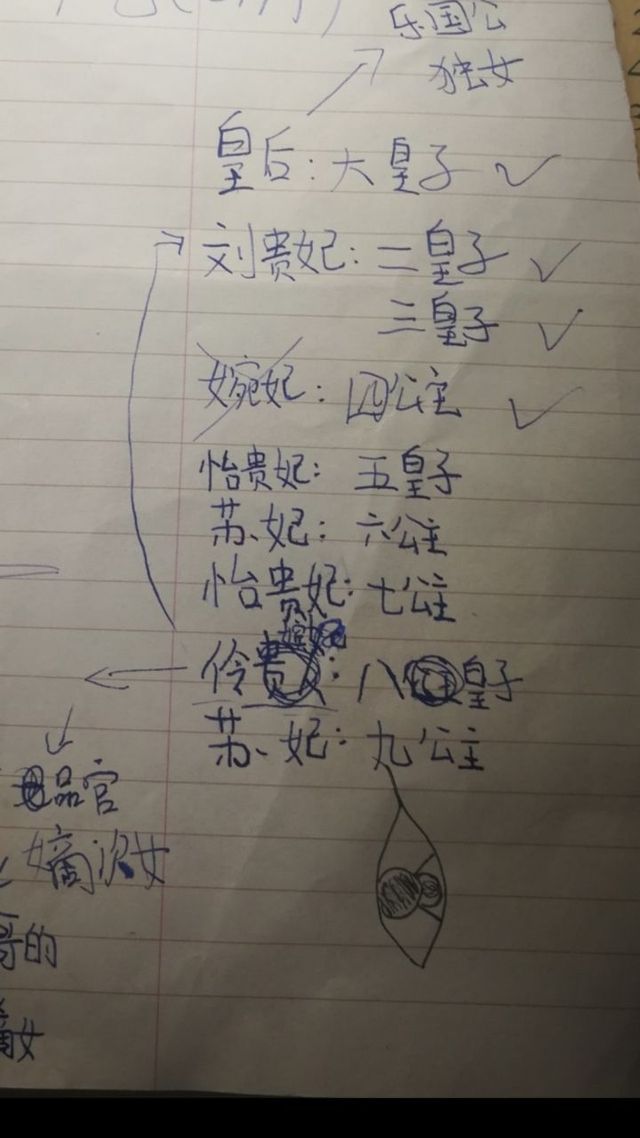 乐国公
独女
皇后：大皇子 ✓
刘贵妃：二皇子 ✓
三皇子 ✓
婉妃：四公主 ✓
怡贵妃：五皇子
苏妃：六公主
怡贵妃：七公主
伶贵：八皇子
苏妃：九公主
品官
嫡次女
哥的
嫡女